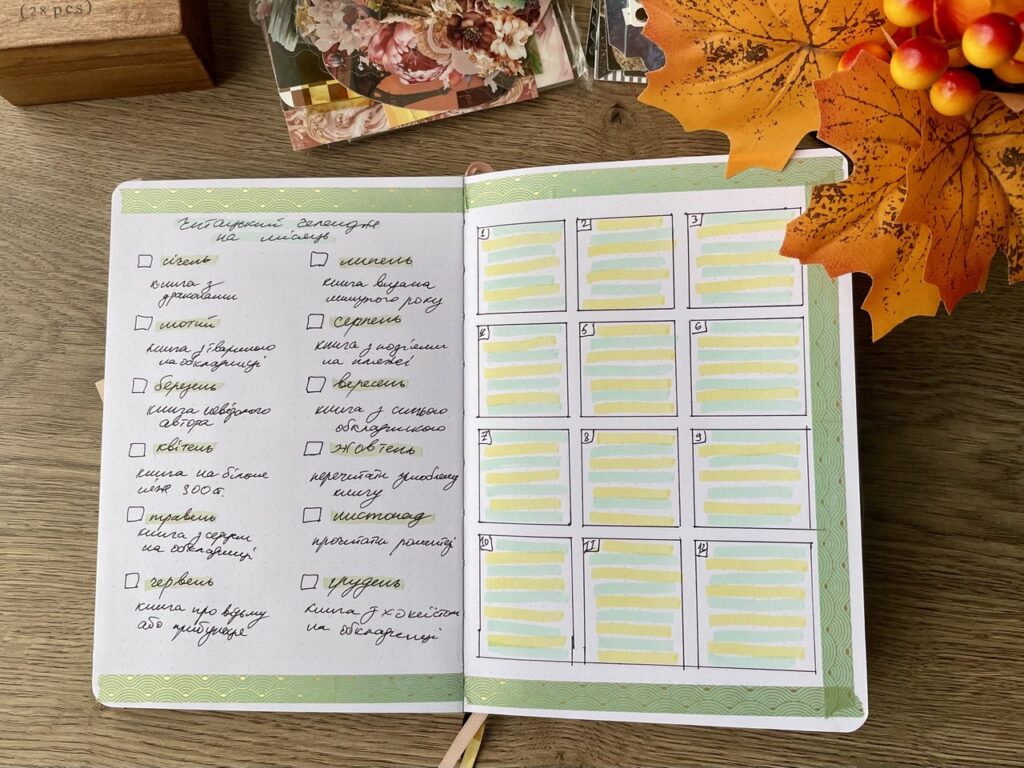 (28 pcs)
Читацький челендж
на місяць
січень
книга з
драконами
лютий
книга з твариною
на обкладинці
березень
книга невідомого
автора
квітень
книга на більше
ніж 300 ст.
травень
книга з серцем
на обкладинці
червень
книга про відьму
або
липень
книга видана
минулого року
серпень
книга з подіями
на пляжі
вересень
книга з синьою
обкладинкою
жовтень
перечитати улюблену
книгу
листопад
прочитати
грудень
книга з хокеїстом
на обкладинці
1
2
3
4
5
6
7
8
9
10
11
12